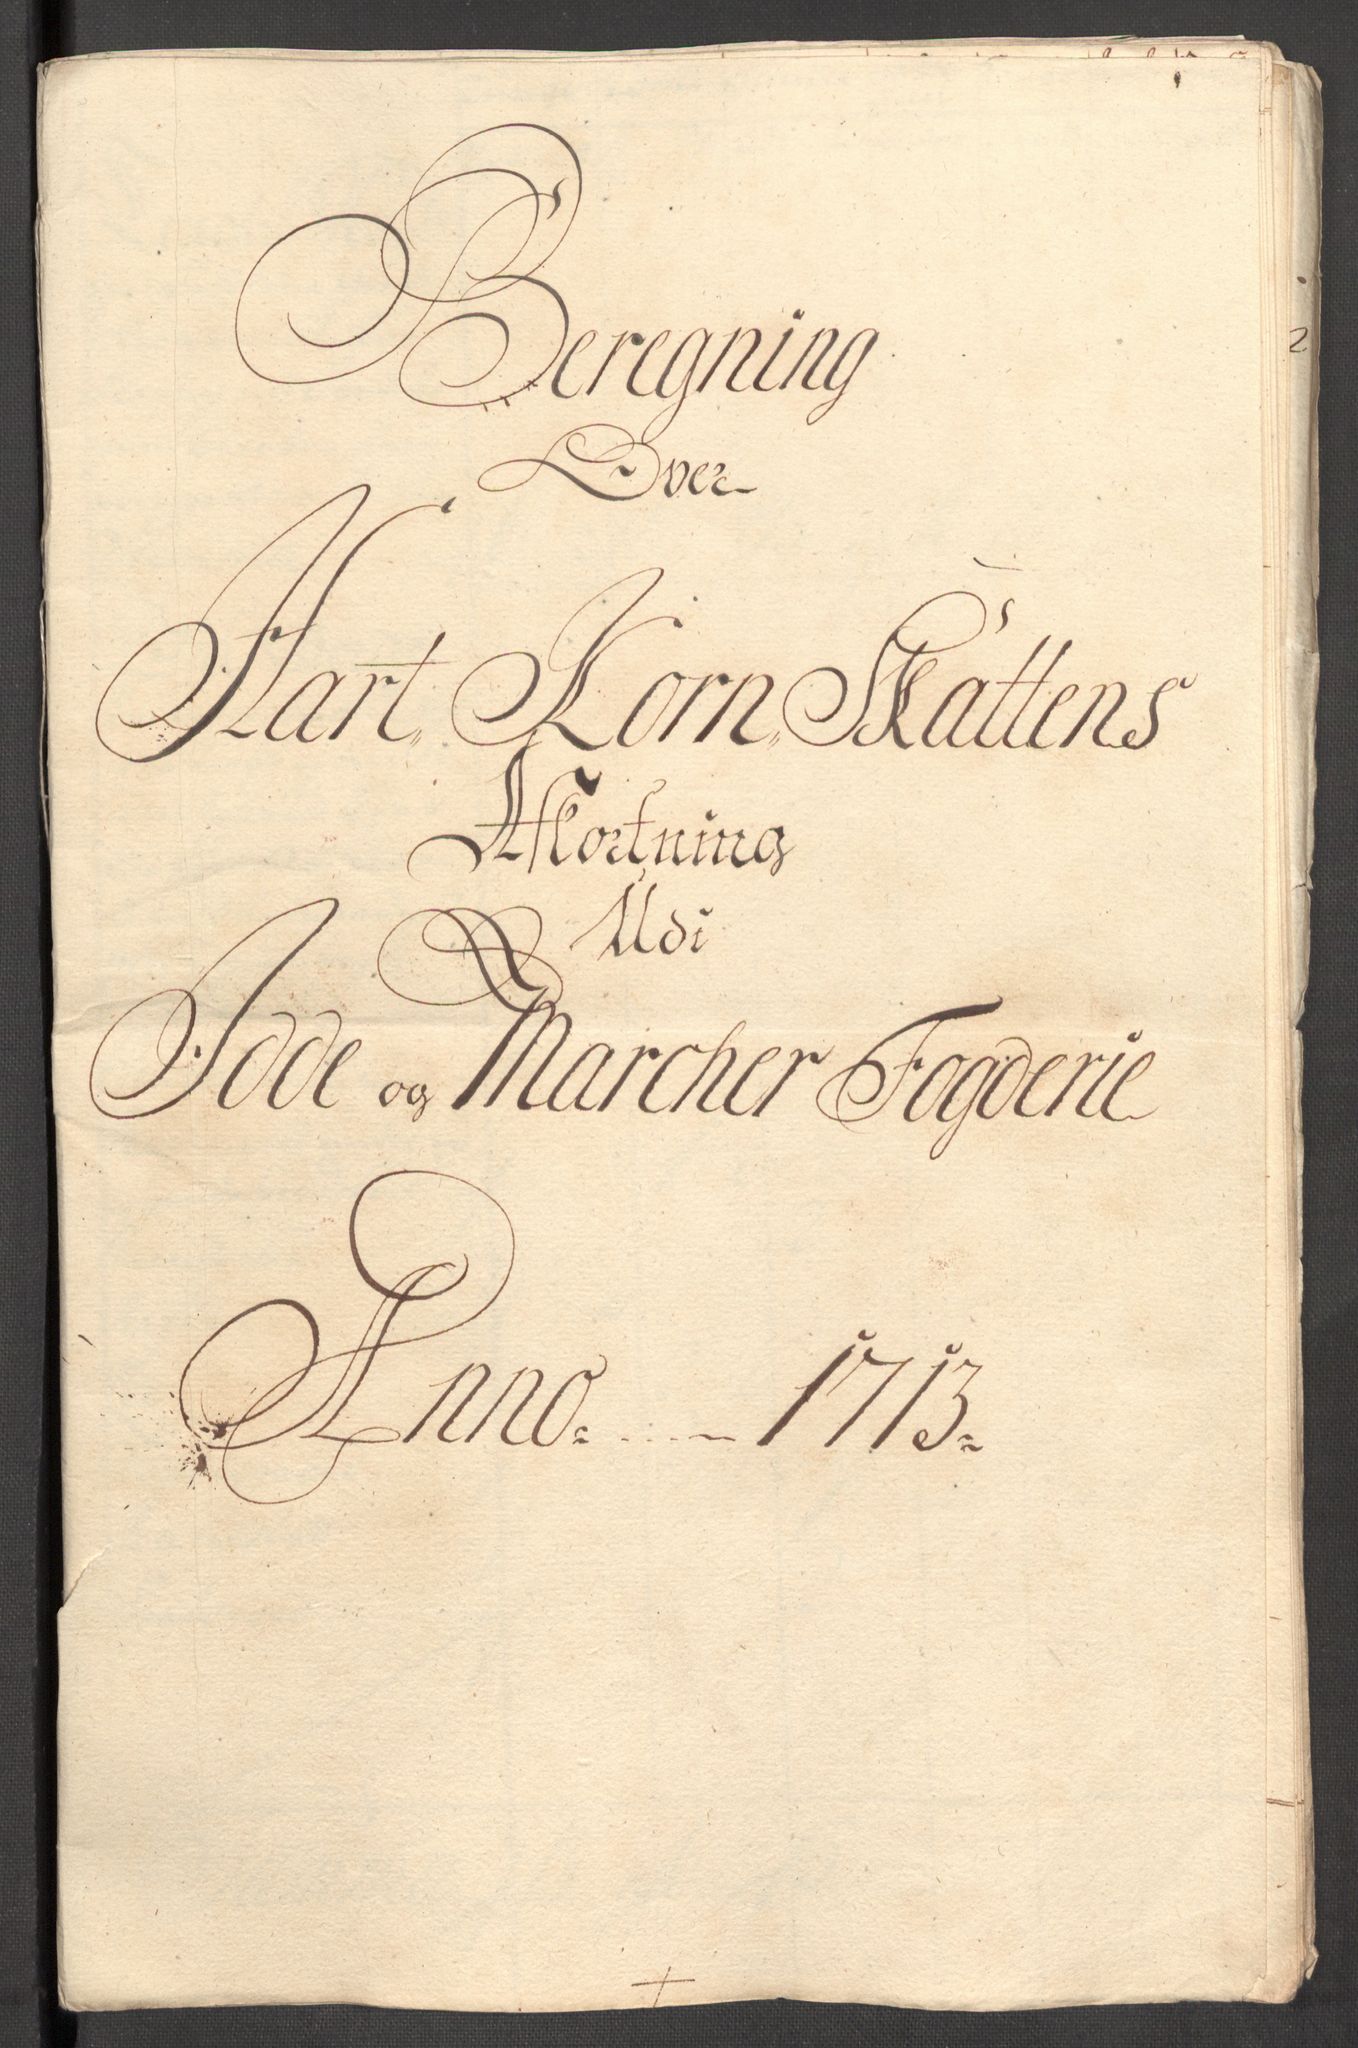 Beregning
Over
Hart Korn Skattens
Afkortning
Udi
Idde og Marcher Fogderie
Anno 1713
2